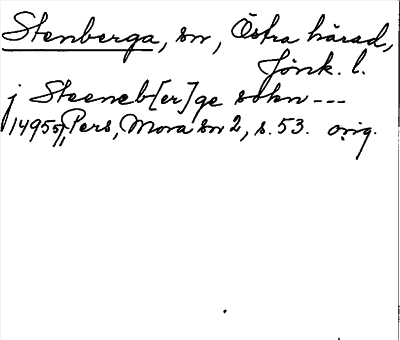 Stenberga, sn, Östra härad,
Jönk. l.
j Steeneb[er]ge sokn ---
1495 Pers, Mora sn 2, s. 53. orig.